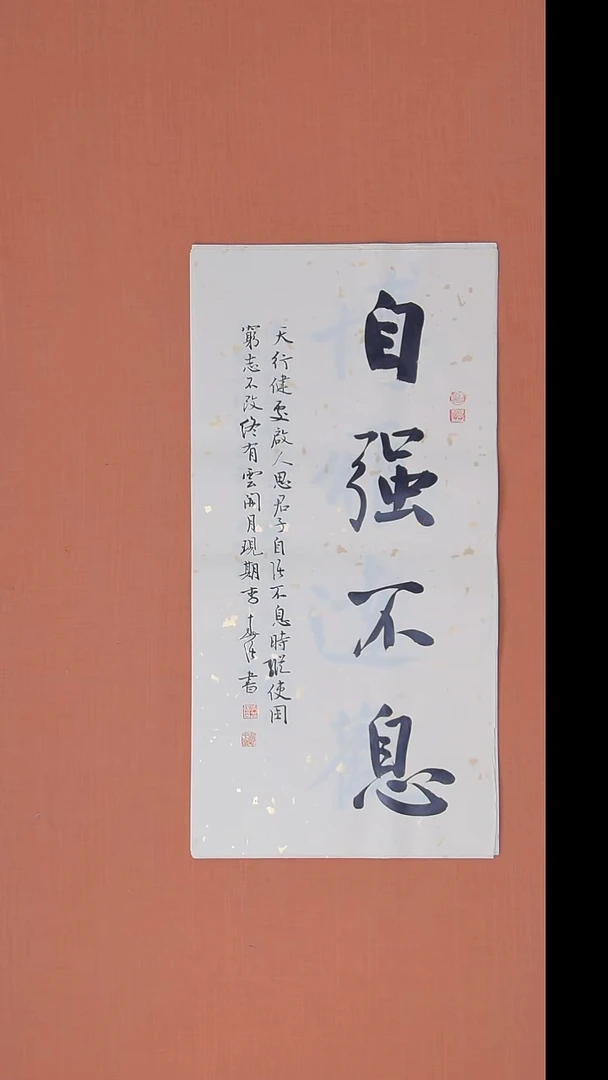 自强不息
天行健更啟人思君子自强不息時縱使困
窮志不改終有雲開月現期 書